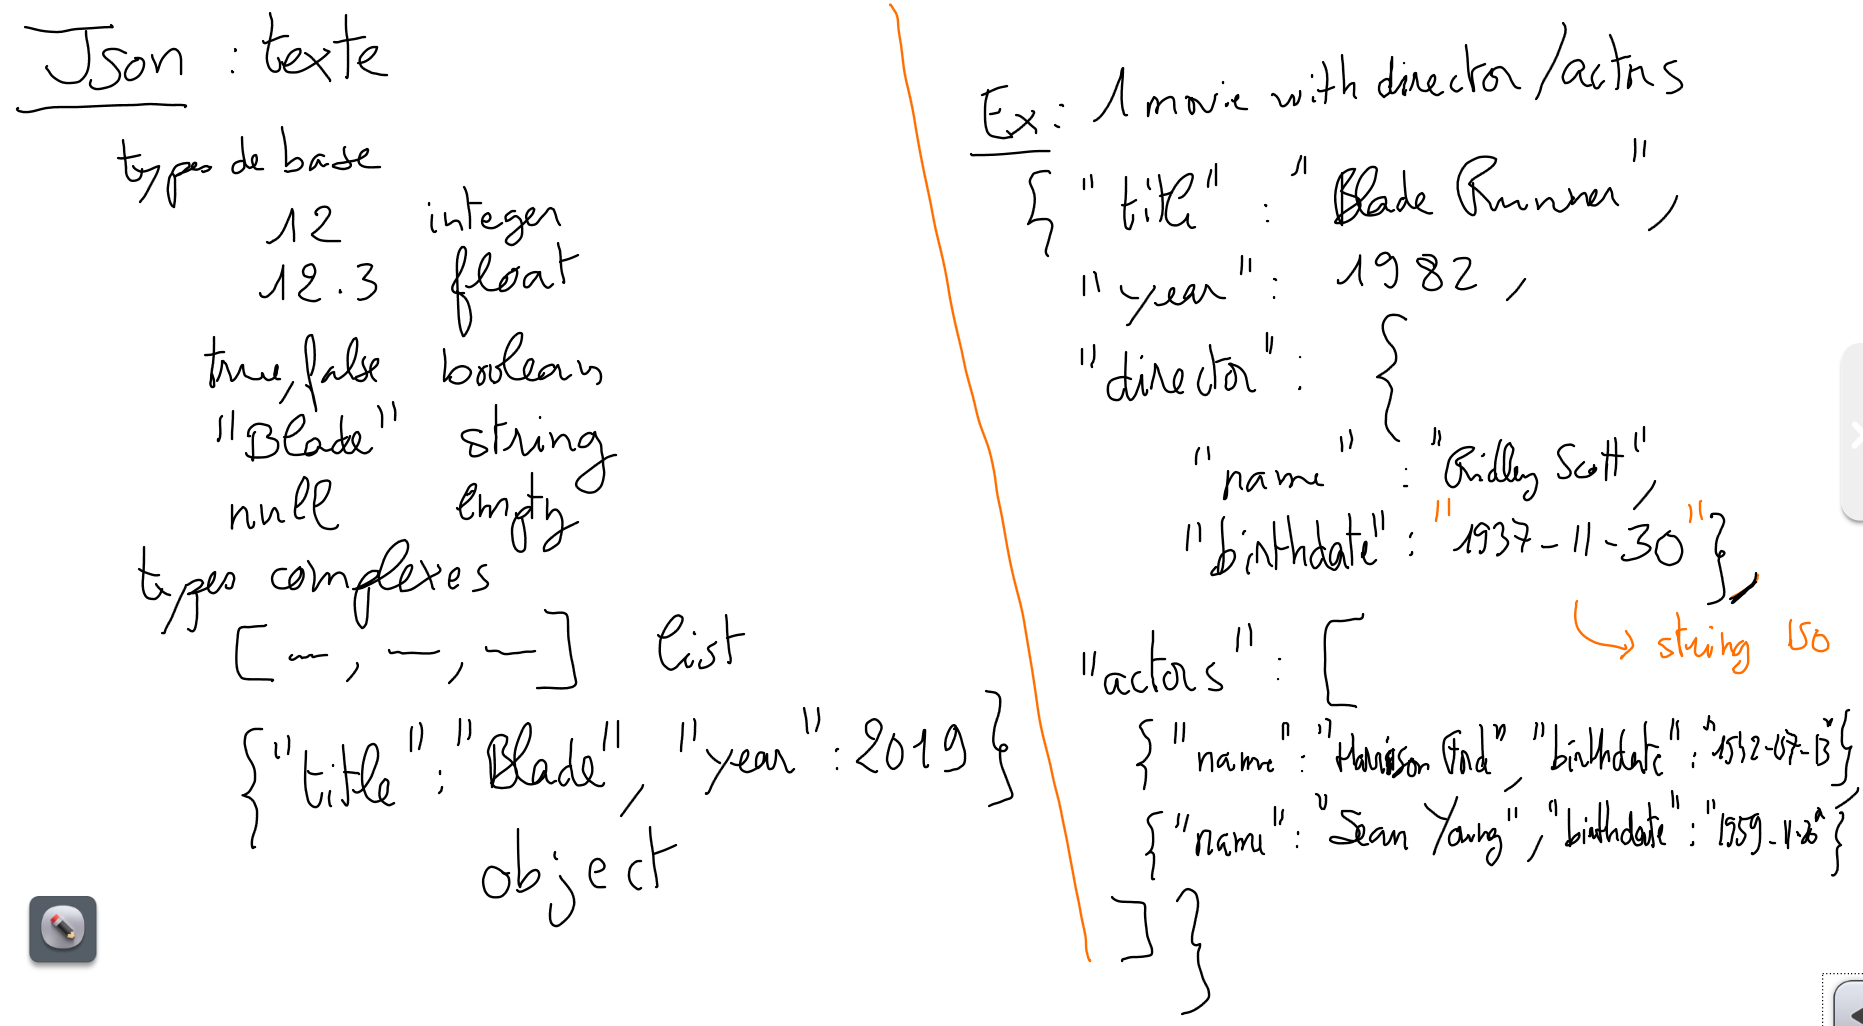 Json : texte
types de base
12 integer
12.3 float
true, false boolean
"Blade" string
null empty
types complexes
[ — , — , — ] list
{"title" : "Blade", "year" : 2019}
object
Ex : 1 movie with director/actors
{ "title" : "Blade Runner",
"year" : 1982,
"director" : {
"name" : "Ridley Scott",
"birthdate" : "1937-11-30"},
→ string ISO
"actors" : [
{"name" : "Harrison Ford", "birthdate" : "1942-07-13"},
{"name" : "Sean Young", "birthdate" : "1959-11-20"}
] }